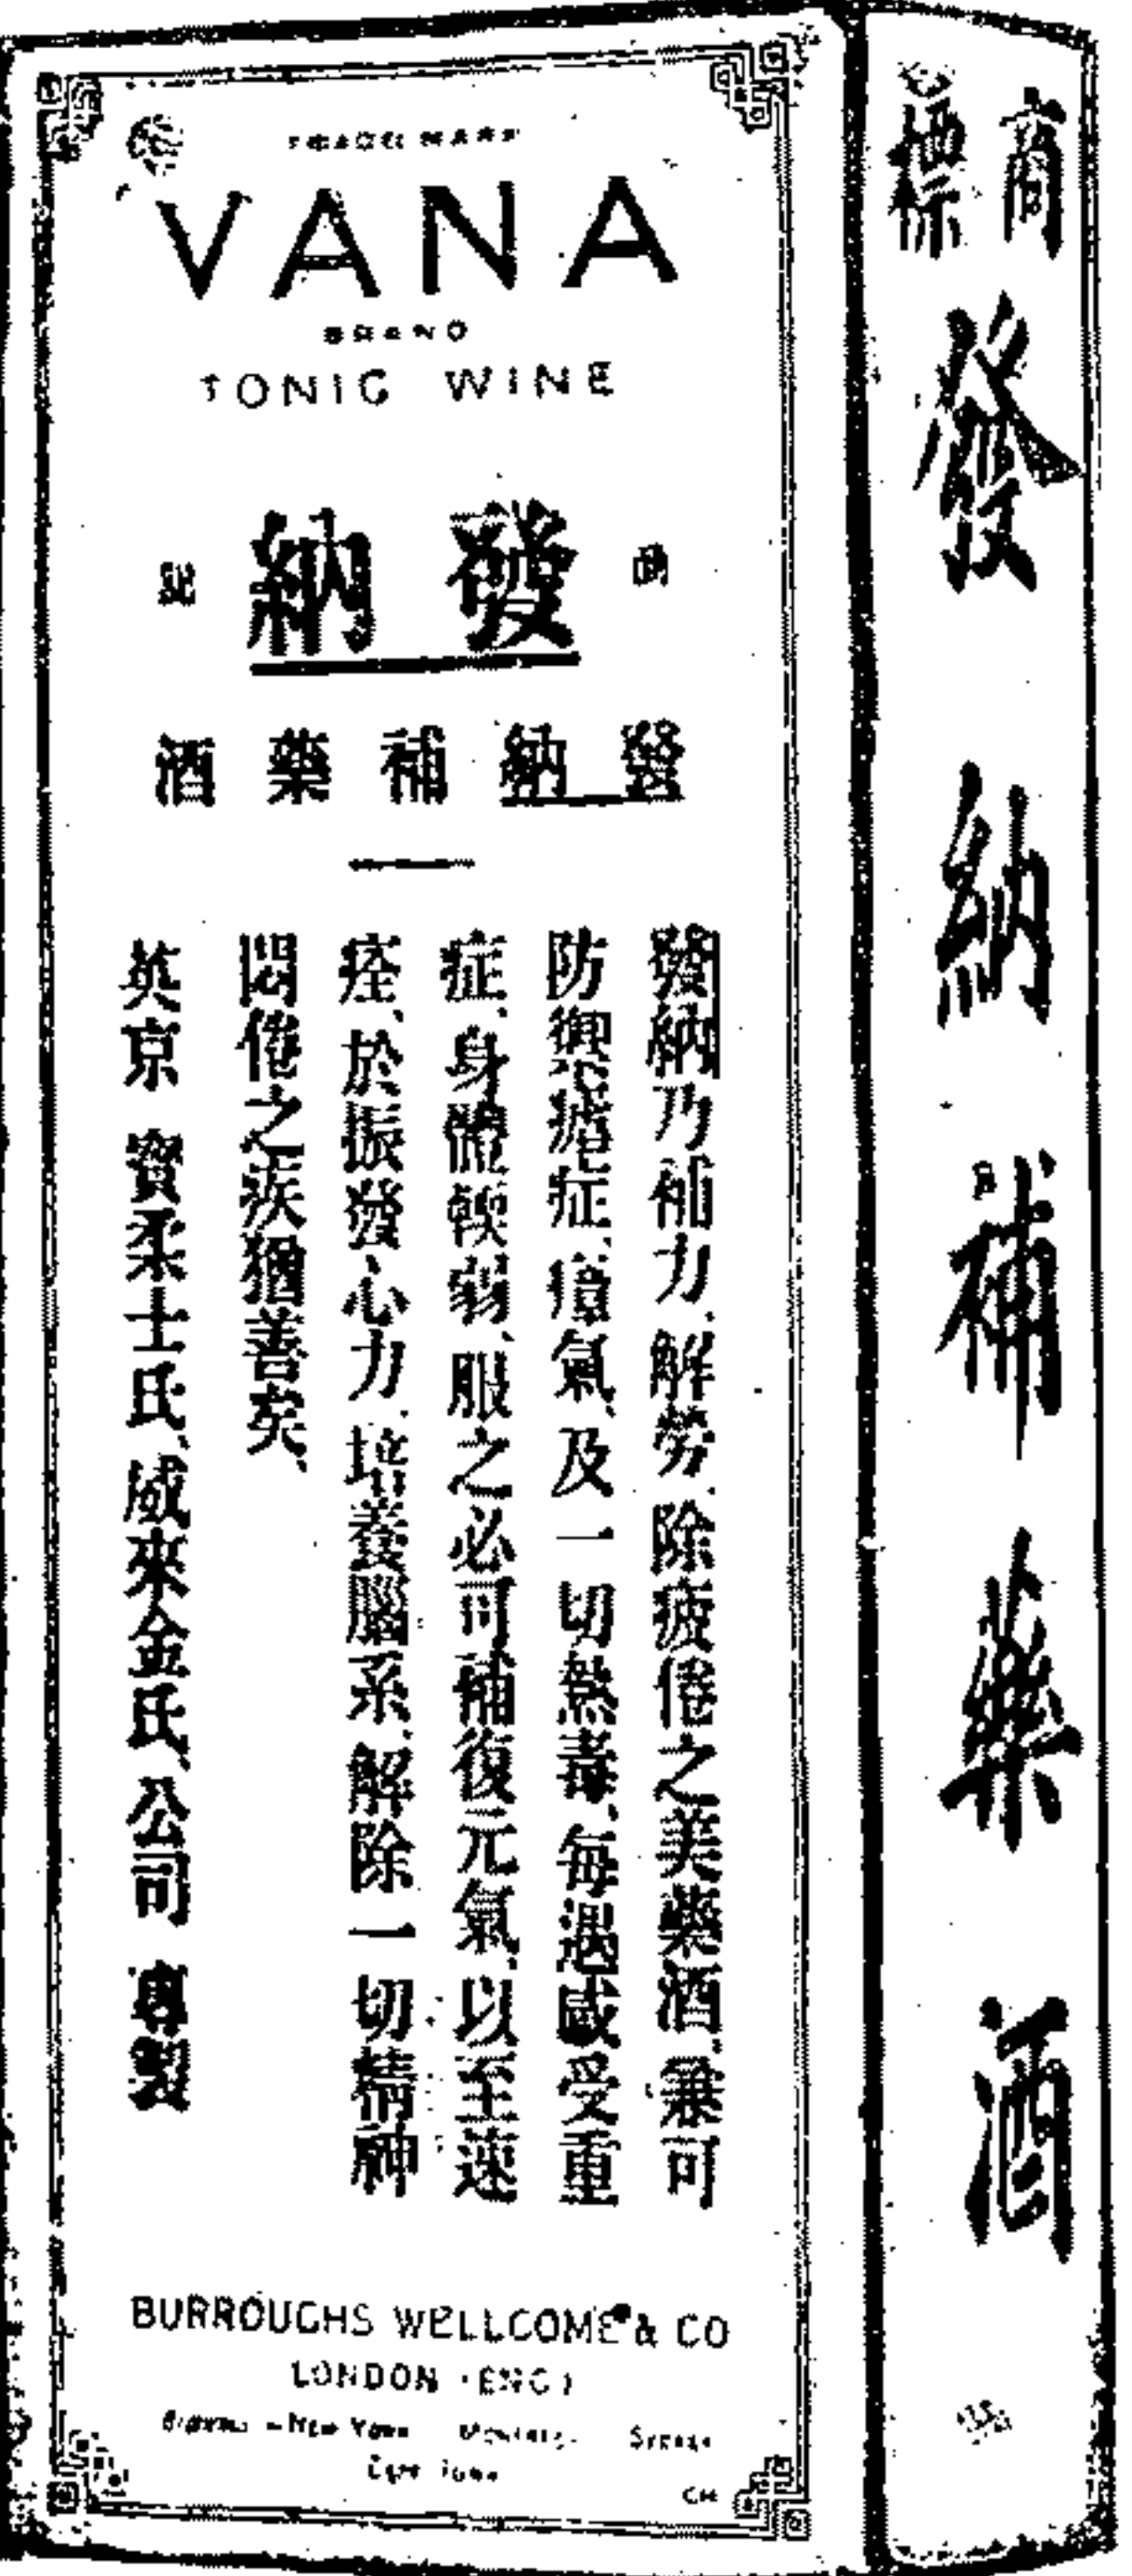 TRADE MARK
VANA
BRAND
TONIC WINE
發納
發納補藥酒
發納乃補力、解勞、除疲倦之美藥酒、兼可
防禦瘧症、瘴氣、及一切熱毒、每遇感受重
症、身體軟弱、服之必可補復元氣、以至速
痊、於振發心力、培養腦系、解除一切精神
悶倦之疾猶善矣、
英京 寶柔士氏、威來金氏、公司 專製
BURROUGHS WELLCOME & CO
LONDON (ENG)
New York Sydney
Cape Town
CH
商標
發納補藥酒